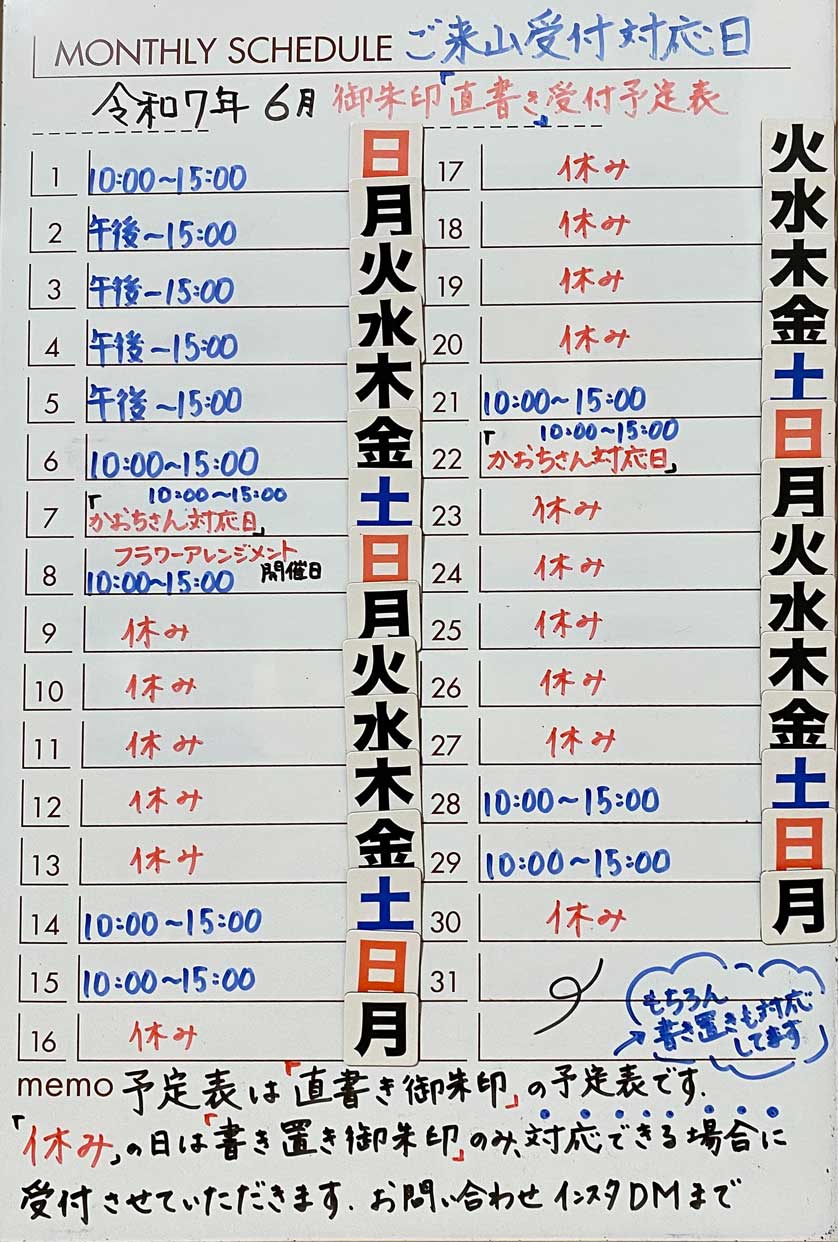 MONTHLY SCHEDULE ご来山受付対応日
令和7年 6月 御朱印「直書き」受付予定表
1 10:00~15:00 日
2 午後~15:00 月
3 午後~15:00 火
4 午後~15:00 水
5 午後~15:00 木
6 10:00~15:00 金
7 「10:00~15:00 土
かおちさん対応日」
8 フラワーアレンジメント 日
10:00~15:00 開催日
9 休み 月
10 休み 火
11 休み 水
12 休み 木
13 休み 金
14 10:00~15:00 土
15 10:00~15:00 日
16 休み 月
17 休み 火
18 休み 水
19 休み 木
20 休み 金
21 10:00~15:00 土
22 「10:00~15:00 日
かおちさん対応日」
23 休み 月
24 休み 火
25 休み 水
26 休み 木
27 休み 金
28 10:00~15:00 土
29 10:00~15:00 日
30 休み 月
31
もちろん
→書き置きも対応
してます
memo 予定表は「直書き御朱印」の予定表です.
「休み」の日は「書き置き御朱印」のみ、対応できる場合に
受付させていただきます. お問い合わせ インスタDMまで